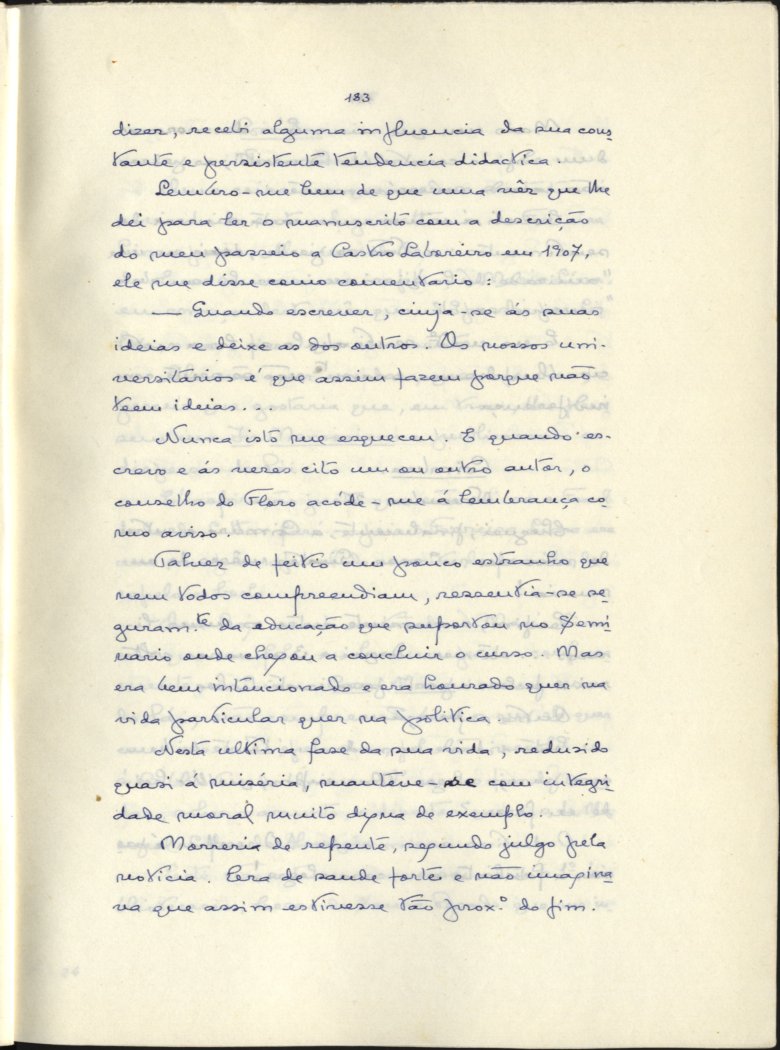 183
dizer, recebi alguma influencia da sua cons-
tante e persistente tendencia didactica.
Lembro-me bem de que uma vêz que lhe
dei para ler o manuscrito com a descrição
do meu passeio a Castro Laboreiro em 1907,
ele me disse como comentario:
— Quando escrever, cinja-se ás suas
ideias e deixe as dos outros. Os nossos uni-
versitários é que assim fazem porque não
teem ideias...
Nunca isto me esqueceu. E quando es-
crevo e ás vezes cito um ou outro autor, o
conselho do Floro acóde-me á lembrança co-
mo aviso.
Talvez de feitio um pouco estranho que
nem todos compreendiam, ressentia-se se-
guram.te da educação que suportou no Semi-
nario onde chegou a concluir o curso. Mas
era bem intencionado e era honrado quer na
vida particular quer na politica.
Nesta ultima fase da sua vida, reduzido
quasi á miséria, manteve-se com integri-
dade moral muito digna de exemplo.
Morreria de repente, segundo julgo pela
noticia. Era de saude forte e não imagina-
va que assim estivesse tão prox.o do fim.